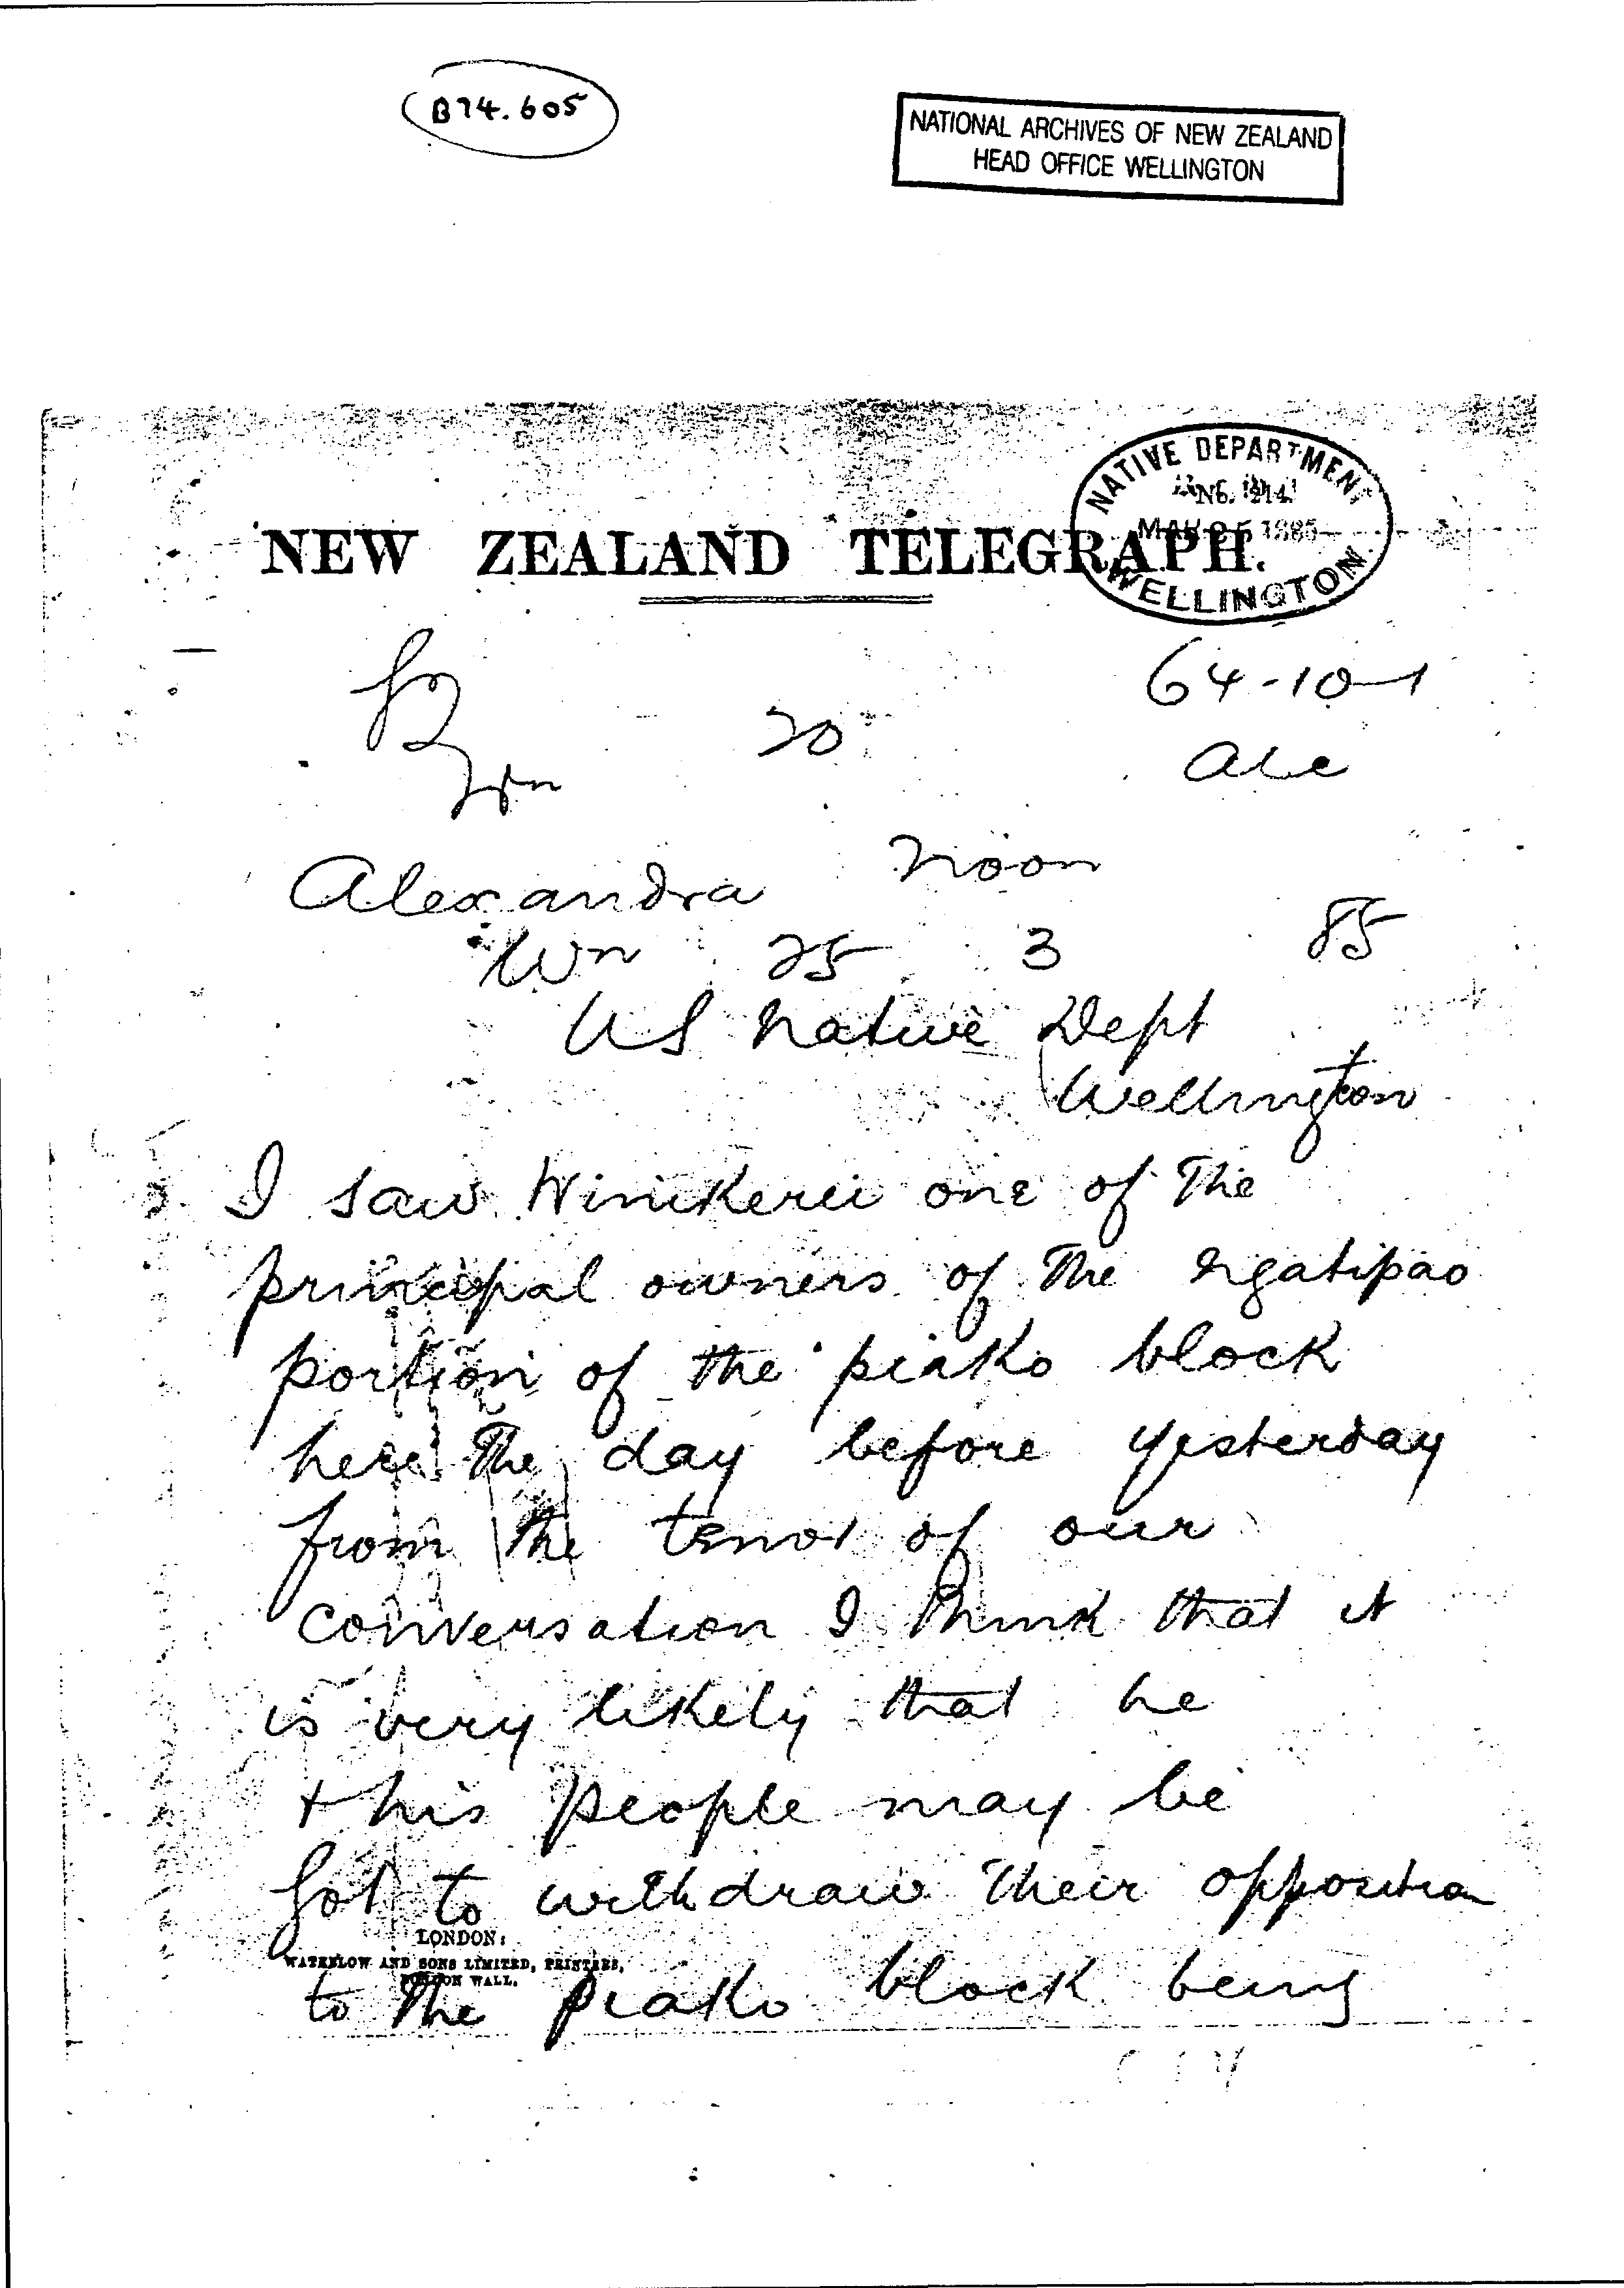 B74.605
NATIONAL ARCHIVES OF NEW ZEALAND
HEAD OFFICE WELLINGTON
NATIVE DEPARTMENT
MAR 25 1885
WELLINGTON
NEW ZEALAND TELEGRAPH.
64-10-1
20
ale
Alexandra noon
Wn 25 3 85
US Native Dept
Wellington
I saw Winikerei one of the
principal owners of the ngatipao
portion of the piako block
here the day before yesterday
from the tenor of our
conversation I think that it
is very likely that he
+ his people may be
got to withdraw their opposition
LONDON:
WATERLOW AND SONS LIMITED, PRINTERS,
LONDON WALL.
to the piako block being